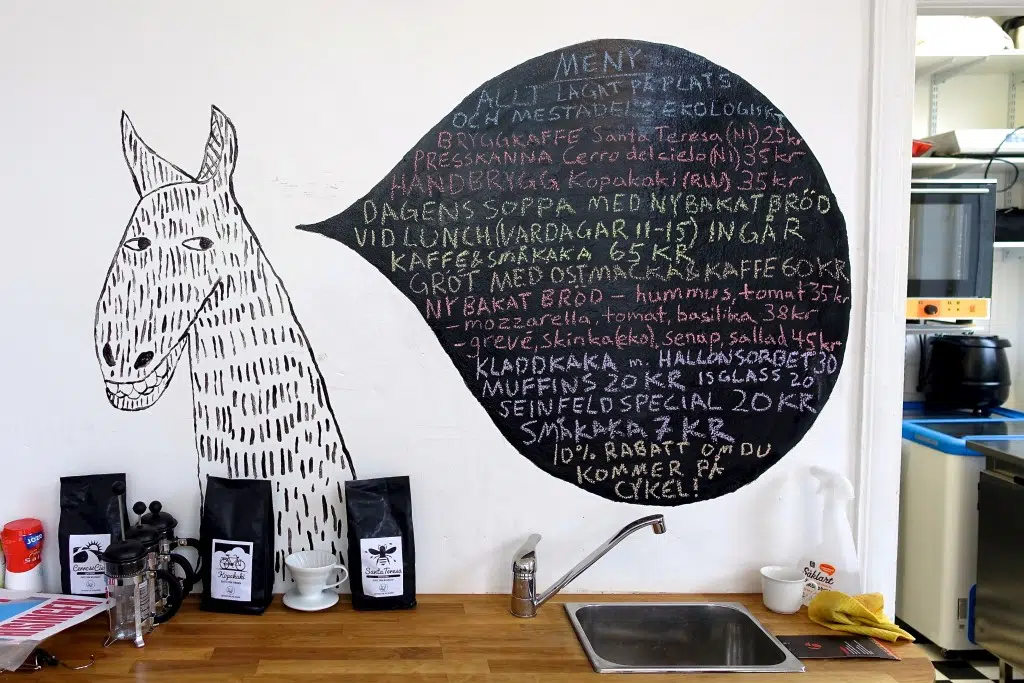 MENY
ALLT LAGAT PÅ PLATS
OCH MESTADELS EKOLOGISKT
BRYGGKAFFE Santa Teresa (NI) 25kr
PRESSKANNA Cerro del cielo (NI) 35kr
HANDBRYGG Kopakaki (RW) 35kr
DAGENS SOPPA MED NYBAKAT BRÖD
VID LUNCH (VARDAGAR 11-15) INGÅR
KAFFE & SMÅKAKA 65 KR
GRÖT MED OSTMACKA & KAFFE 60 KR
NYBAKAT BRÖD - hummus, tomat 35kr
- mozzarella, tomat, basilika 38kr
- grevé, skinka(eko), senap, sallad 45kr
KLADDKAKA m. HALLONSORBET 30
MUFFINS 20 KR ISGLASS 20
SEINFELD SPECIAL 20 KR
SMÅKAKA 7 KR
10% RABATT OM DU
KOMMER PÅ
CYKEL!
JOZO
Kopakaki
Santa Teresa
Såklart